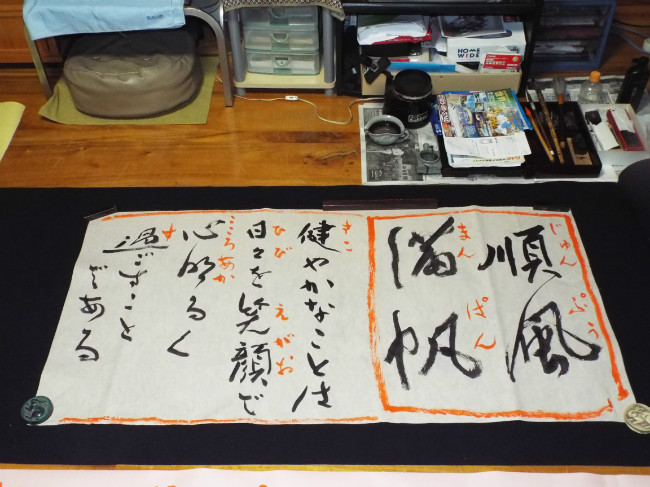 順風
じゅんぷう
満帆
まんぱん
健やかなことは
すこ
日々を笑顔で
ひび えがお
心明るく
こころあか
過ごすこと
す
である
HOME
WIDE